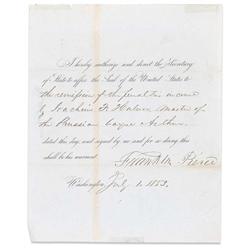 I hereby authorize and direct the Secretary
of State to affix the Seal of the United States to
the remission of the penalties incurred
by Joachim F. Master of
the Prussian barque
dated this day, and signed by me and for so doing this
shall be his warrant.
Franklin Pierce
Washington, July 1. 1853.